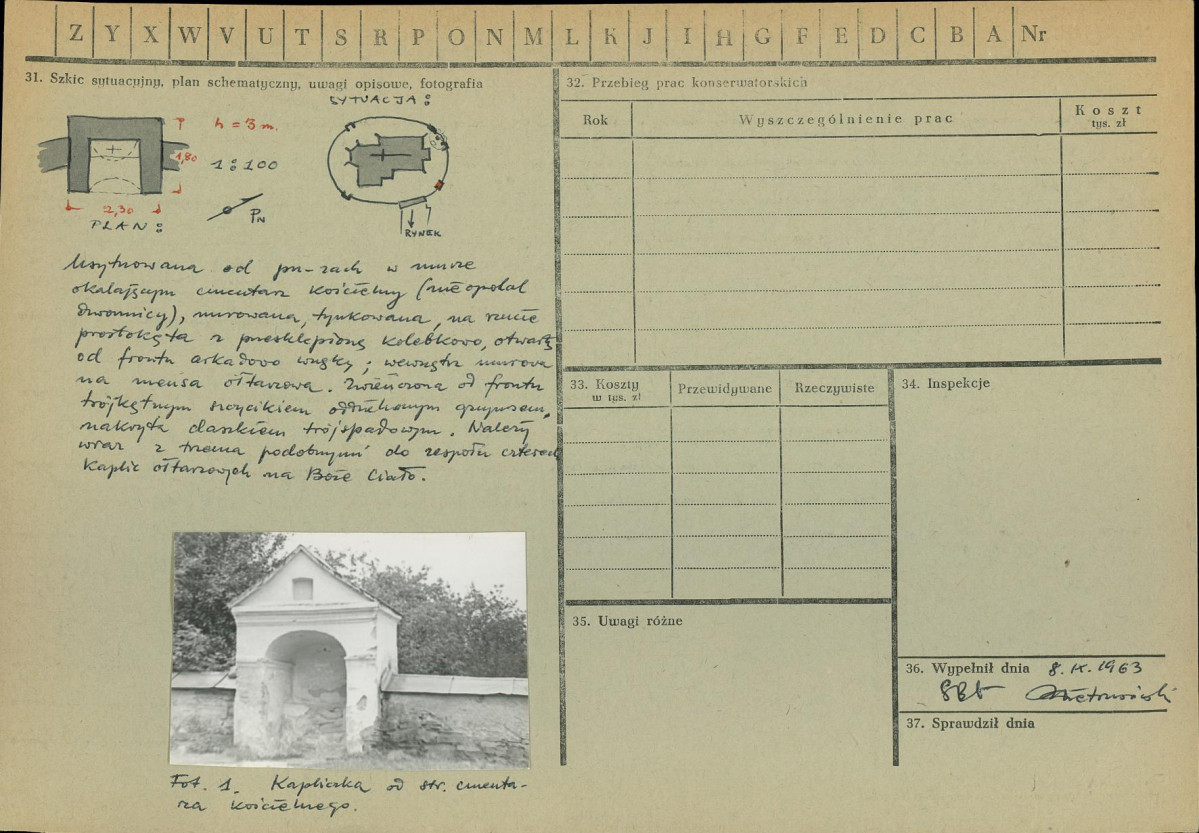 Z Y X W V U T S R P O N M L K J I H G F E D C B A Nr
31. Szkic sytuacyjny, plan schematyczny, uwagi opisowe, fotografia
SYTUACJA:
h = 3 m.
1,80
1:100
2,30
PN
PLAN:
RYNEK
Usytuowana od pn-zach w murze
okalającym cmentarz kościelny (nieopodal
dzwonnicy), murowana, tynkowana, na rzucie
prostokąta z przesklepioną kolebkowo, otwartą
od frontu arkadowo wnęką; wewnątrz murowa
na mensa ołtarzowa. Zwieńczona od frontu
trójkątnym szczycikiem oddzielonym gzymsem,
nakryta daszkiem trójspadowym. Należy
wraz z trzema podobnymi do zespołu czterech
kaplic ołtarzowych na Boże Ciało.
Fot. 1. Kapliczka od str. cmenta-
rza kościelnego.
32. Przebieg prac konserwatorskich
Rok Wyszczególnienie prac Koszt
tys. zł
33. Koszty
w tys. zł
Przewidywane Rzeczywiste
34. Inspekcje
35. Uwagi różne
36. Wypełnił dnia 8. IX. 1963
37. Sprawdził dnia